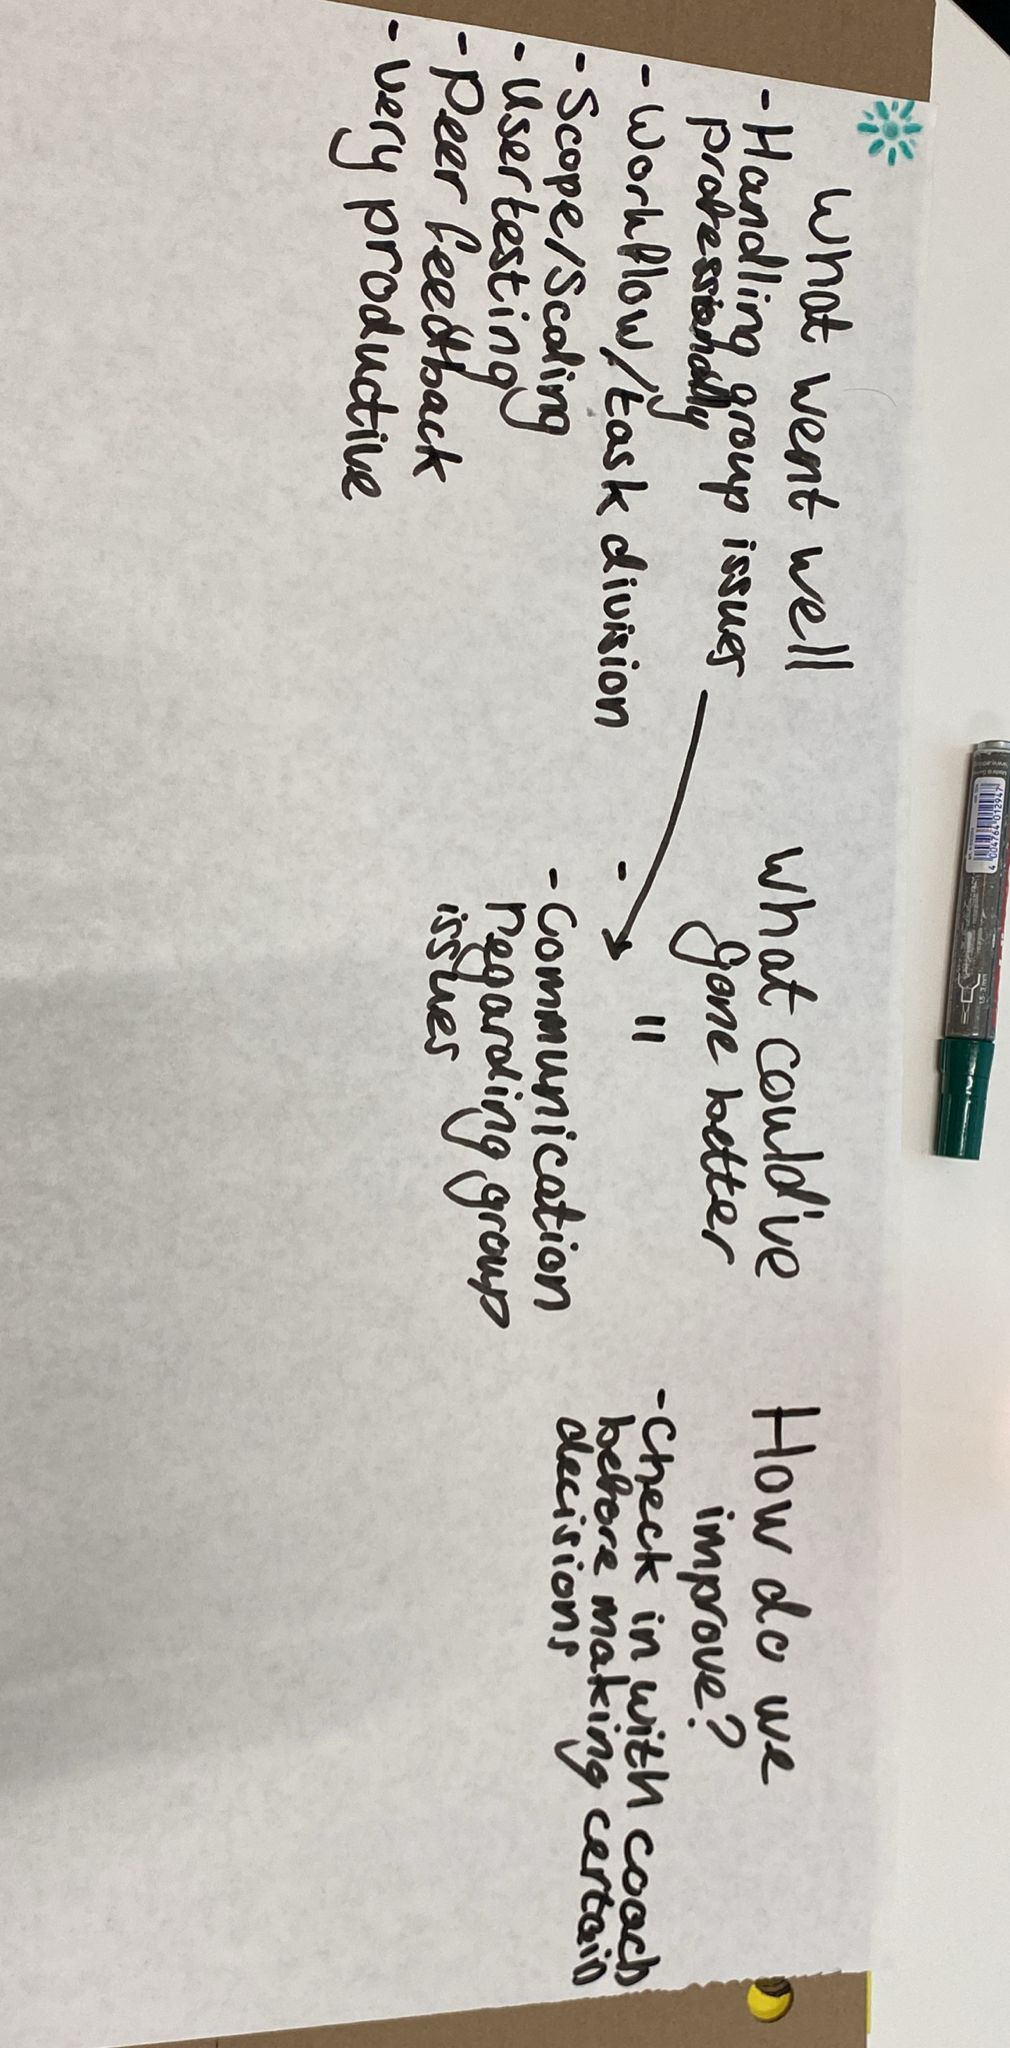 What went well
- Handling group issues
professionally
- Workflow/task division
- Scope/Scaling
- Usertesting
- Peer feedback
- very productive
What could've
gone better
- "
- Communication
regarding group
issues
How do we
improve?
- Check in with coach
before making certain
decisions
4 004764 012947